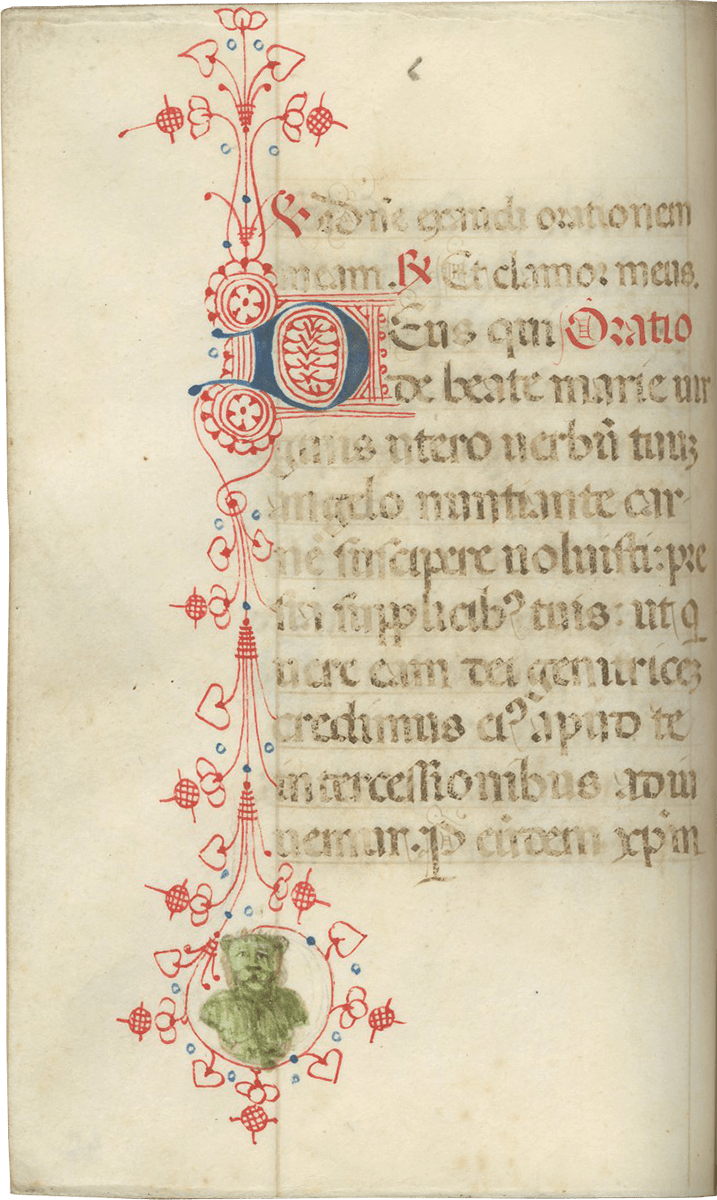 ℣ Dñe exaudi orationem
meam. ℟ Et clamor meus.
DEus qui Oratio
de beate marie uir
ginis utero uerbũ tuuꝫ
angelo nuntiante car-
nẽ suscipere uoluisti: pre
sta supplicibꝰ tuis: ut ꝗ
uere eam dei genitriceꝫ
credimus eiꝰ apud te
intercessionibus adiu
uemur. P eũdem xp̃m